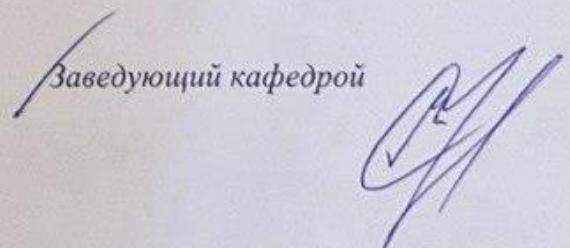 Заведующий кафедрой